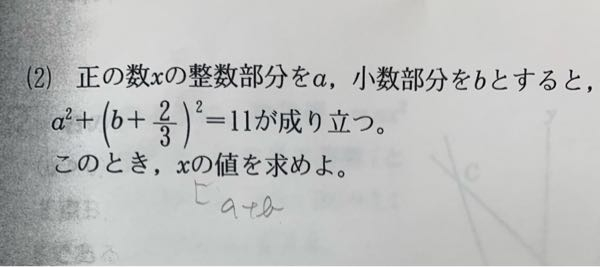 (2) 正の数xの整数部分をa，小数部分をbとすると，
a²+(b+2/3)²=11が成り立つ。
このとき，xの値を求めよ。
a+b
C
y